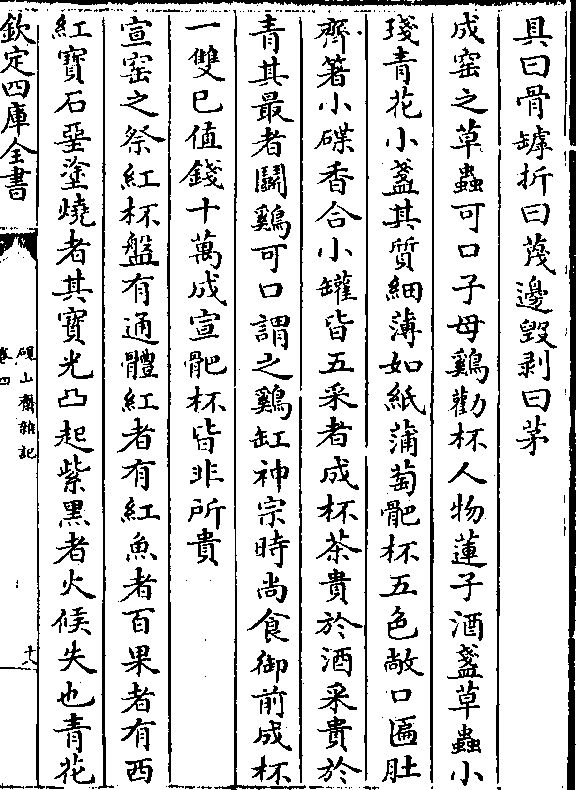 具曰骨罅折曰蔑邊毀剥曰茅
成窑之草蟲可口子母鷄勸杯人物蓮子酒盞草蟲小
琖青花小盞其質細薄如紙蒲萄靶杯五色敞口匾肚
齊箸小碟香合小罐皆五采者成杯茶貴於酒采貴於
青其最者鬬鷄可口謂之鷄缸神宗時尚食御前成杯
一雙已值錢十萬成宣靶杯皆非所貴
宣窑之祭紅杯盤有通體紅者有紅魚者百果者有西
紅寶石堊塗燒者其寶光凸起紫黑者火候失也青花
欽定四庫全書
硯山齋雜記
卷四
十八